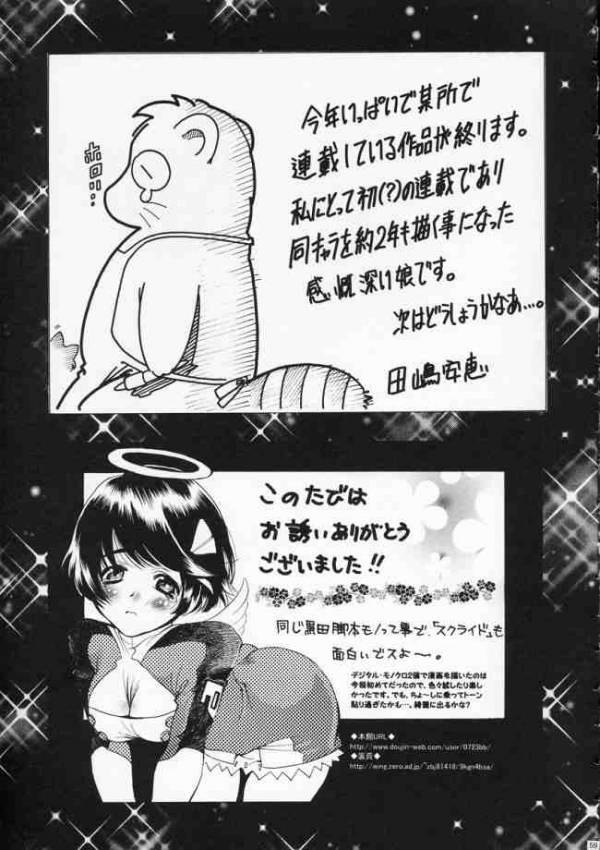 今年いっぱいで某所で
連載している作品が終ります。
私にとって初(?)の連載であり
同キャラを約2年も描く事になった
感慨深い娘です。
次はどうしようかなあ…。
田嶋安恵
ホロリ…
このたびは
お誘いありがとう
ございました!!
同じ黒田脚本モノって事で、「スクライド」も
面白いでスよ〜。
デジタル・モノクロ2値で漫画を描いたのは
今回初めてだったので、色々試したり楽し
かったです。でも、ちょ〜しに乗ってトーン
貼り過ぎたかも…。綺麗に出るかな?
◆本館URL◆
http://www.doujin-web.com/user/0723bb/
◆裏頁◆
59